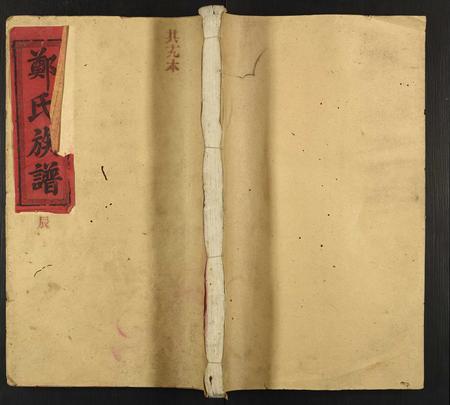 鄭氏族譜
辰
共六本